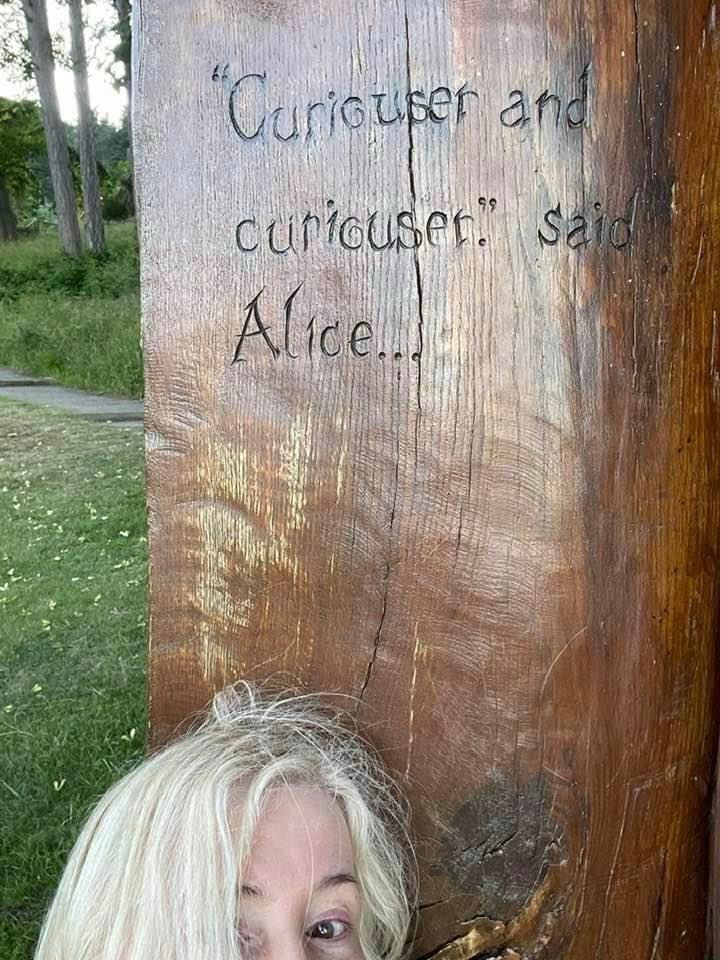 “Curiouser and
curiouser.” said
Alice...